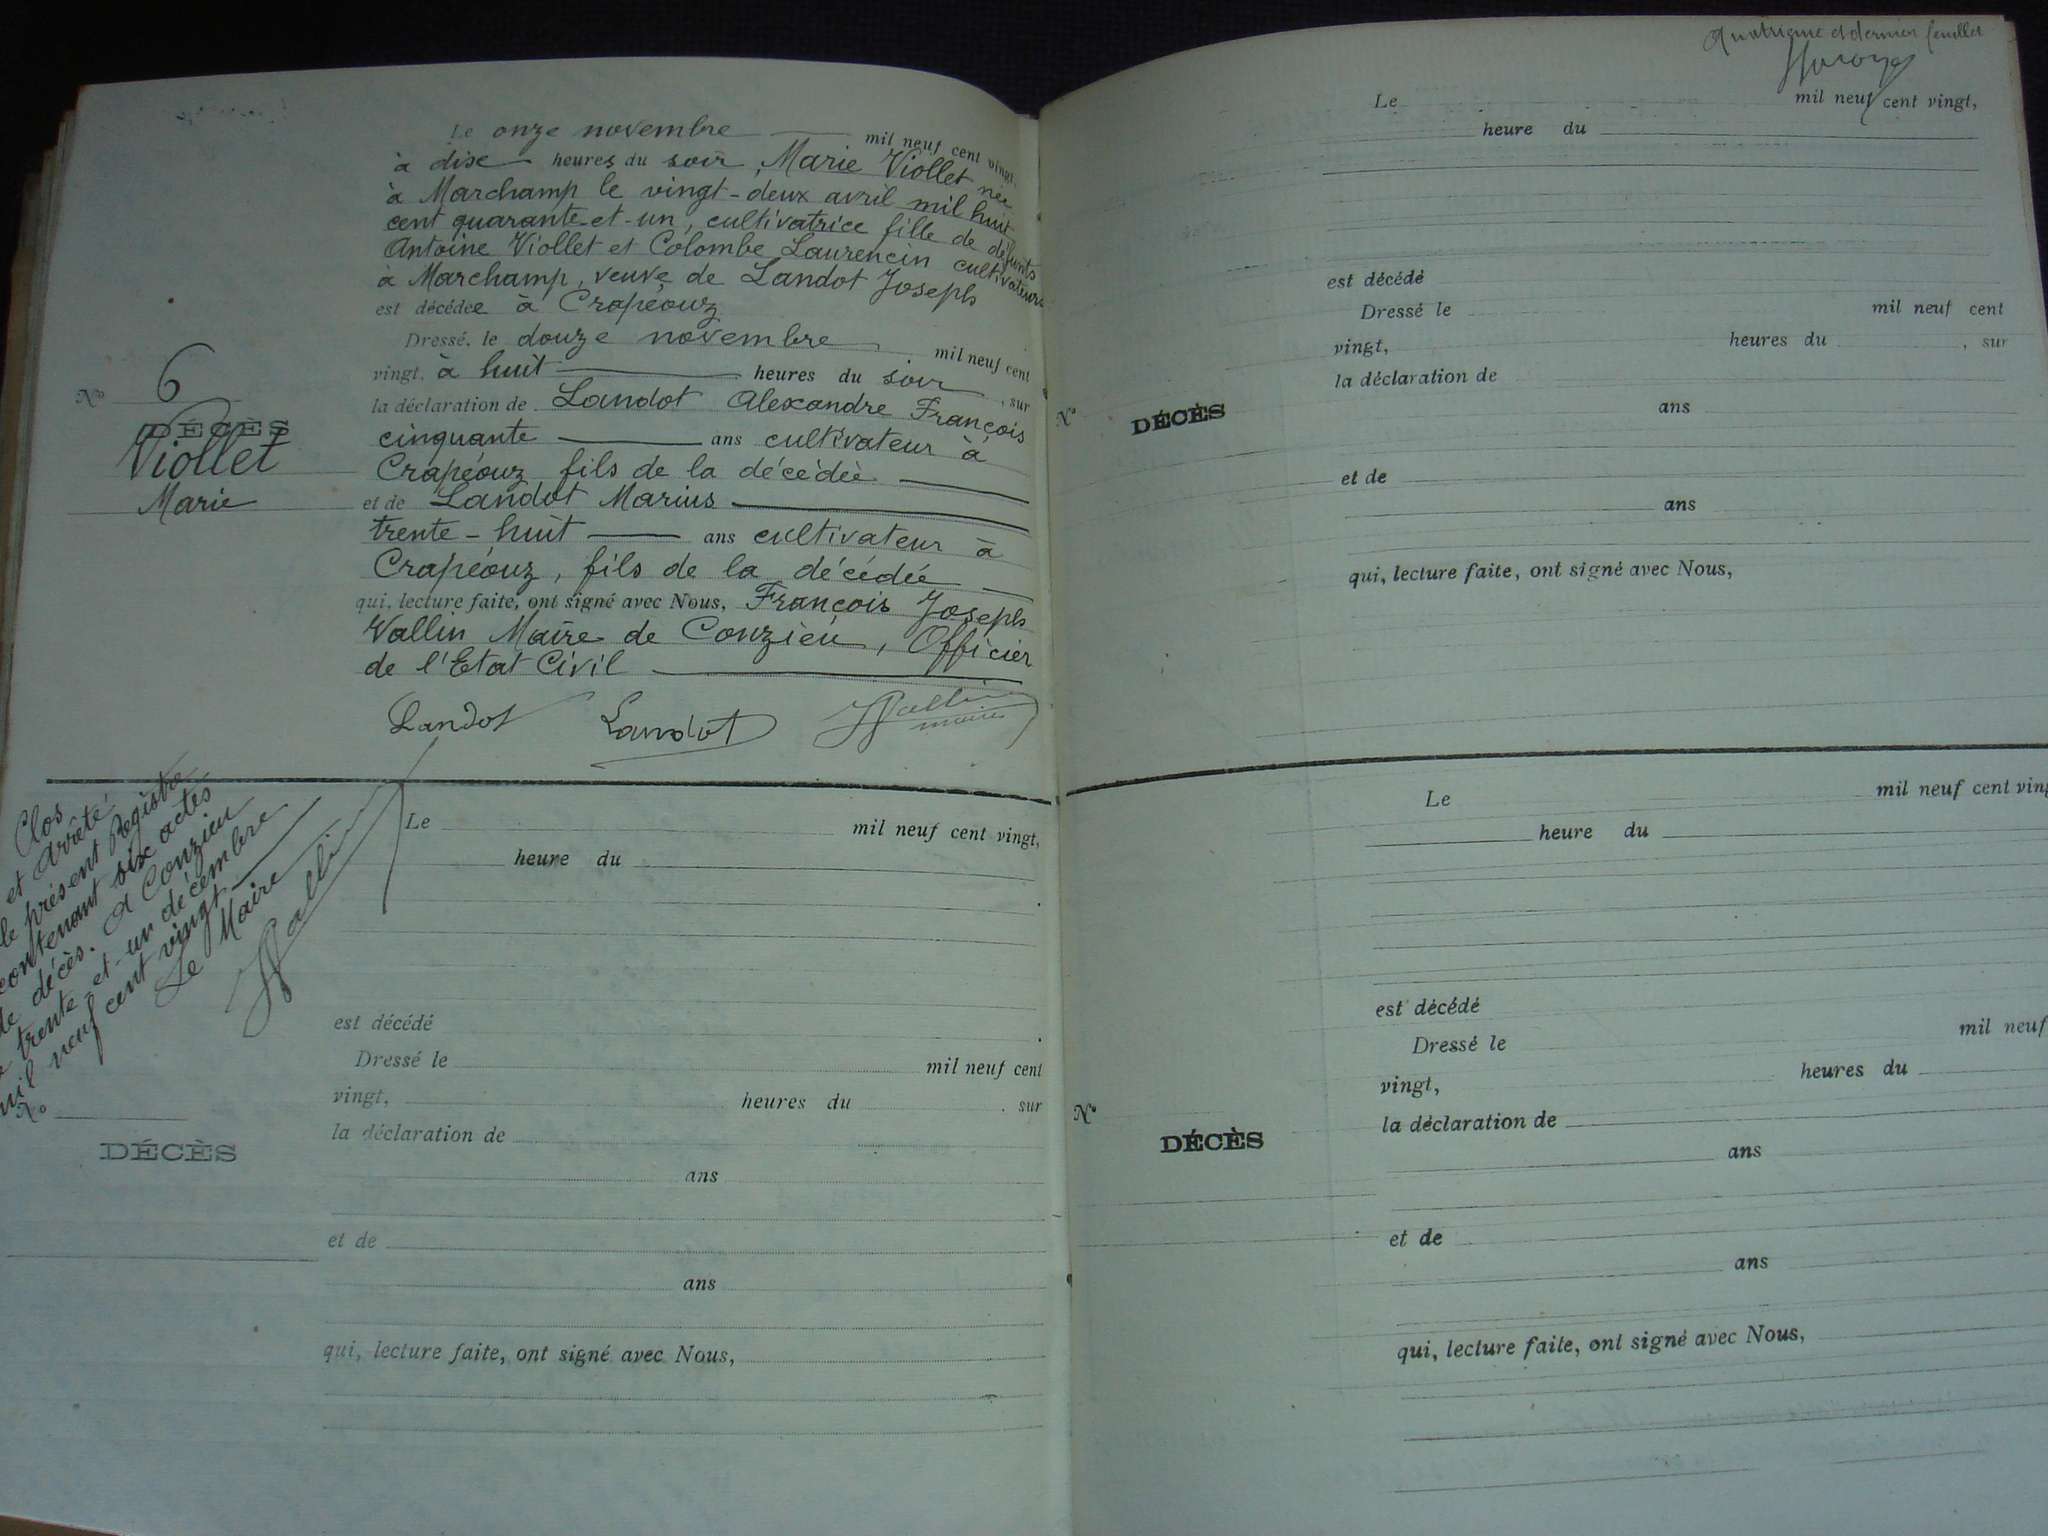 Le onze novembre mil neuf cent vingt,
à dix heures du soir, Marie Viollet née
à Marchamp le vingt-deux avril mil huit
cent quarante-et-un, cultivatrice fille de défunts
Antoine Viollet et Colombe Laurencin cultivateurs
à Marchamp, veuve de Landot Joseph
est décédée à Crapéouz
Dressé, le douze novembre mil neuf cent
vingt, à huit heures du soir, sur
la déclaration de Landot Alexandre François
cinquante ans cultivateur à
Crapéouz fils de la décédée
et de Landot Marius
trente-huit ans cultivateur à
Crapéouz, fils de la décédée
qui, lecture faite, ont signé avec Nous, François Joseph
Vallin Maire de Conzieu, Officier
de l'Etat Civil
Landot Landot Vallin
maire
N° 6
DÉCÈS
Viollet
Marie
Clos
et Arrêté
le présent Registre
contenant six actes
de décès. A Conzieu
trente-et-un décembre
mil neuf cent vingt
Le Maire
Vallin
Le mil neuf cent vingt,
heure du
est décédé
Dressé le mil neuf cent
vingt, heures du , sur
la déclaration de
ans
et de
ans
qui, lecture faite, ont signé avec Nous,
N°
DÉCÈS
Quatrième et dernier feuillet
Le mil neuf cent vingt,
heure du
est décédé
Dressé le mil neuf cent
vingt, heures du , sur
la déclaration de
ans
et de
ans
qui, lecture faite, ont signé avec Nous,
N°
DÉCÈS
Le mil neuf cent ving
heure du
est décédé
Dressé le mil neuf
vingt, heures du
la déclaration de
ans
et de
ans
qui, lecture faite, ont signé avec Nous,
N°
DÉCÈS